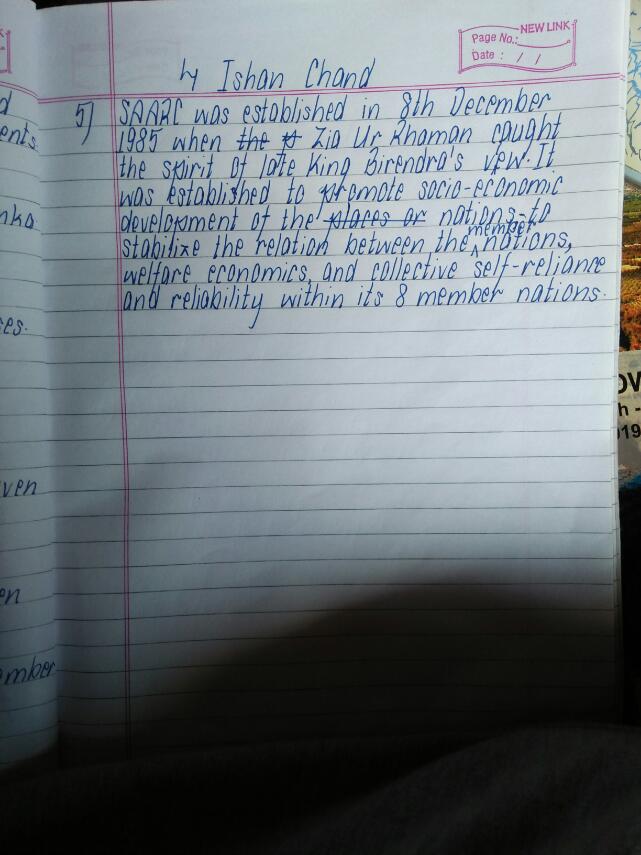 NEW LINK
Page No.:
Date : / /
by Ishan Chand
5) SAARC was established in 8th December
1985 when the p Zia Ur Rhaman caught
the spirit of late King Birendra's vew. It
was established to promote socio-economic
development of the places or nations, to
stabilize the relation between the member nations,
welfare economics, and collective self-reliance
and reliability within its 8 member nations.
d
ents.
nka
ses.
ven
en
ember
h -
019